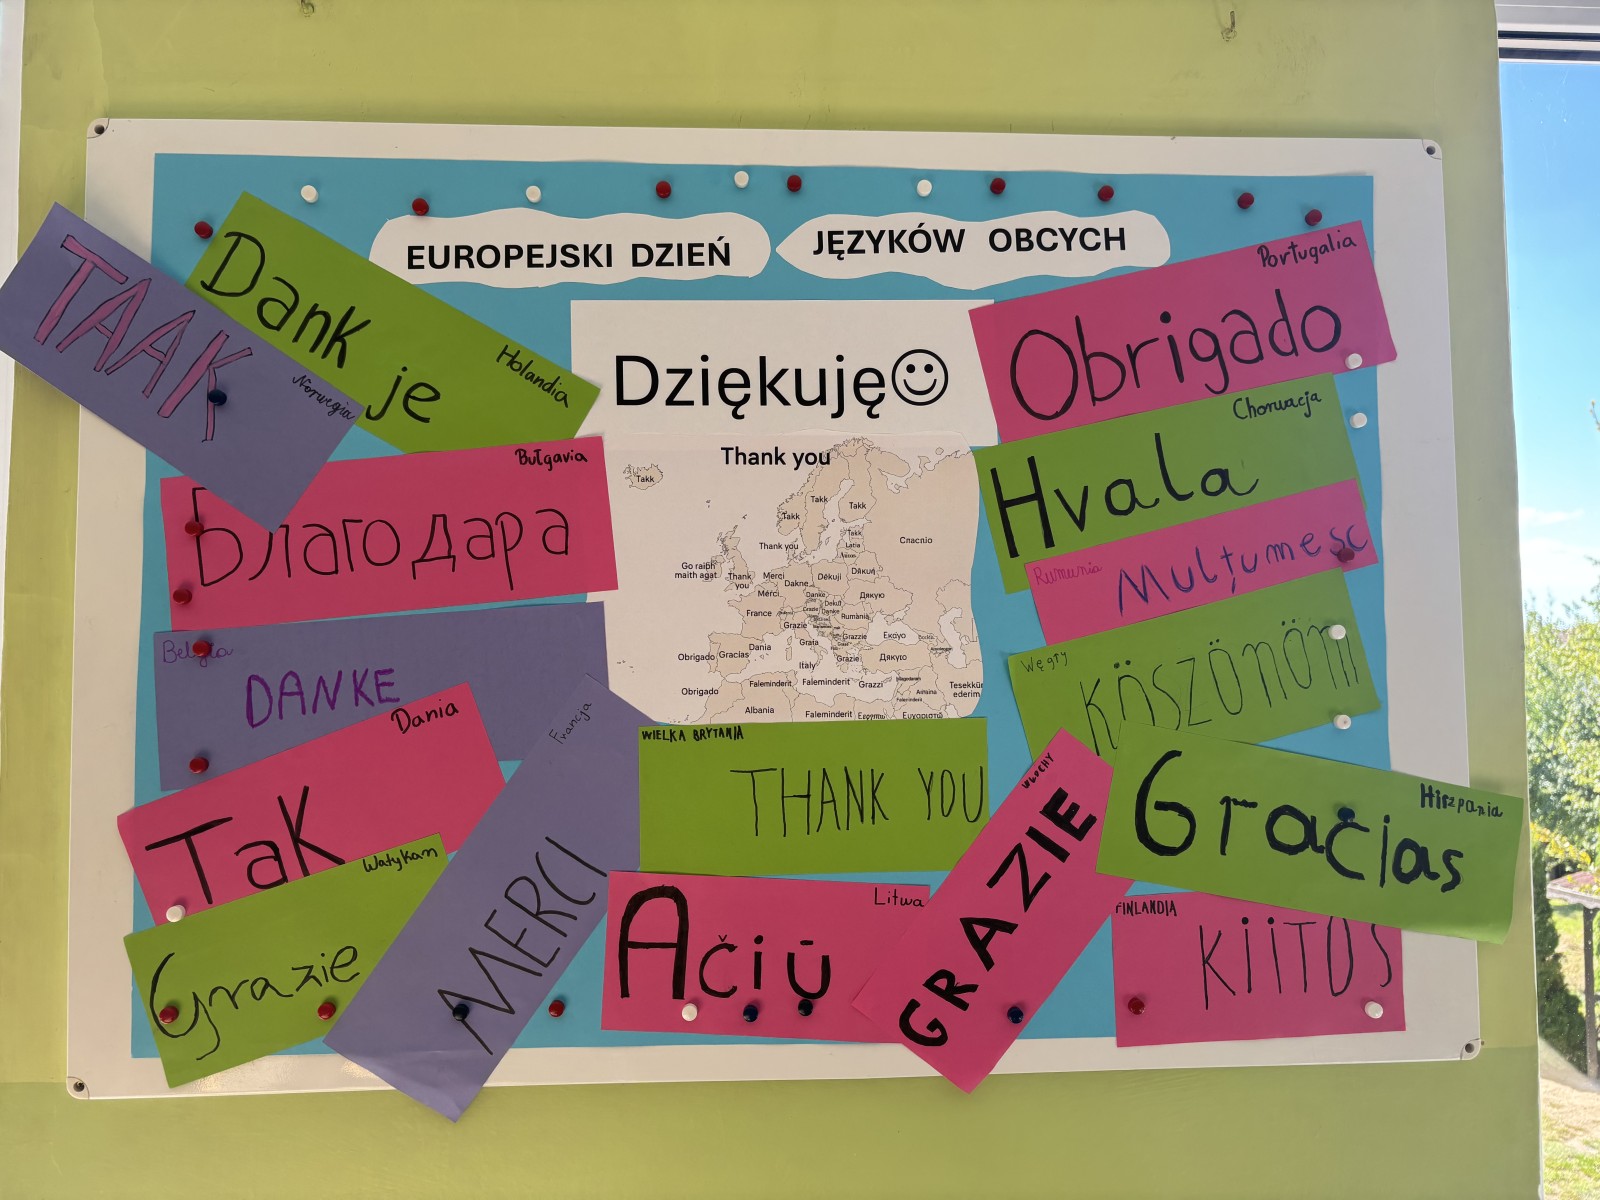 EUROPEJSKI DZIEŃ
JĘZYKÓW OBCYCH
TAAK
Norwegia
Dank je
Holandia
Dziękuję
Portugalia
Obrigado
Chorwacja
Hvala
Bułgavia
Благодара
Rumunia
Mulțumesc
Belgia
DANKE
Węgry
Köszönöm
Thank you
Takk
Takk
Takk
Takk
Takk
Latia
Спаспіо
Thank you
Go raibh
maith agat
Thank
you
Merci
Mérci
Dakne
Dėkuji
Dåkuń
France
Danke
Dekuł
Danke
Дякую
Grazie
Rumània
Grazzie
Екауо
Obrigado
Gracias
Dania
Grata
Italy
Grazie
Дякую
Obrigado
Faleminderit
Faleminderit
Grazzi
Tesekkür
ederim
Albania
Faleminderit
Dania
Tak
Francja
MERCI
WIELKA BRYTANIA
THANK YOU
WŁOCHY
GRAZIE
Hiszpania
Gračias
Watykan
Grazie
Litwa
Ačiū
FINLANDIA
KIITOS